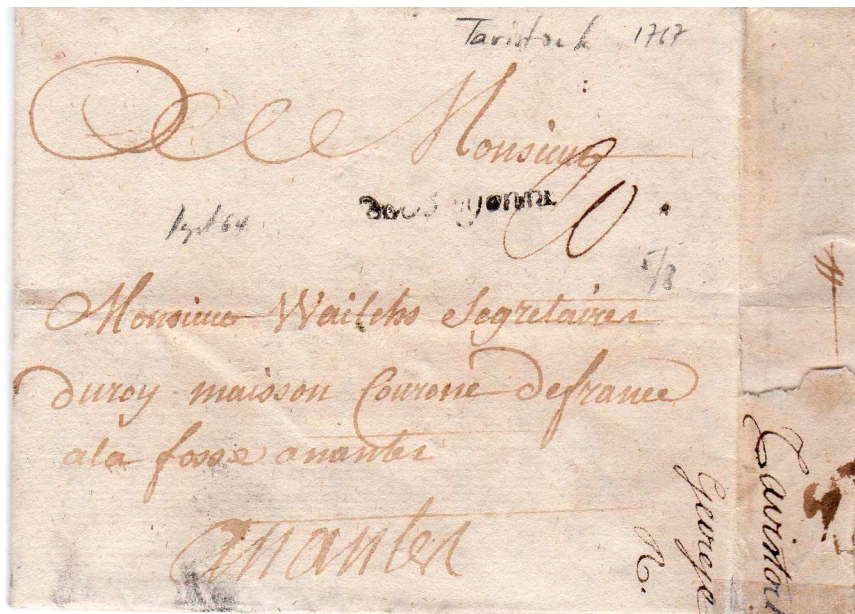 Tavistock 1767
Monsieur
20
5/8
Monsieur Wailchs Segretairer
duroy maisson Courone defrance
ala fosse ananter
Ananter
George
R.
Tavistoc